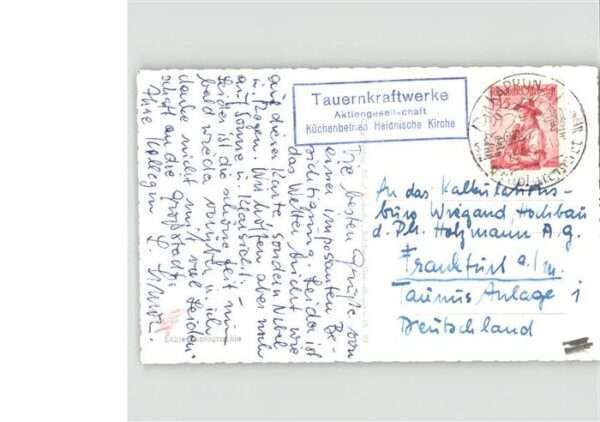 Tauernkraftwerke
Aktiengesellschaft
Küchenbetrieb Heidnische Kirche
KAPRUN
Die besten Grüße von
einer imposanten Be-
sichtigung. Leider ist
das Wetter nicht wie
auf dieser Karte sondern Nebel
u. Regen. Wir hoffen aber noch
auf Sonne u. Klarsicht.
Leider ist die schöne Zeit nur
bald wieder vorüber u. ich
denke nicht mit viel Freuden
schaft an die Großstadt.
Ihre Kollegin L.
An das Kalkulations-
büro Wiegand, Hochbau
d. Ph. Holzmann A.G.
Frankfurt a/m.
Taunus Anlage 1
Deutschland